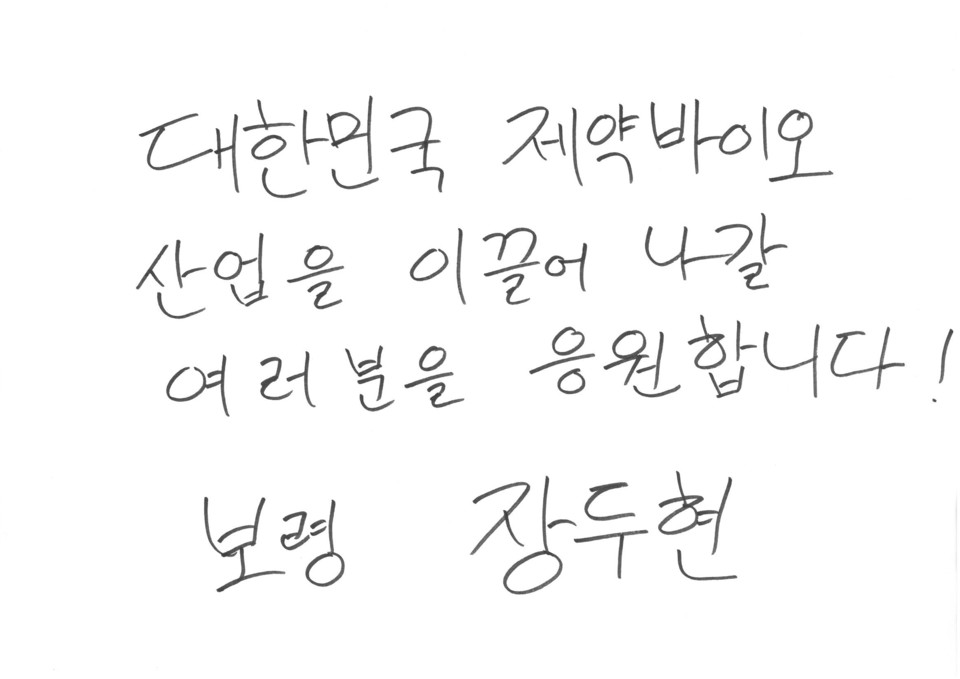 대한민국 제약바이오
산업을 이끌어 나갈
여러분을 응원합니다!
보령 장두현